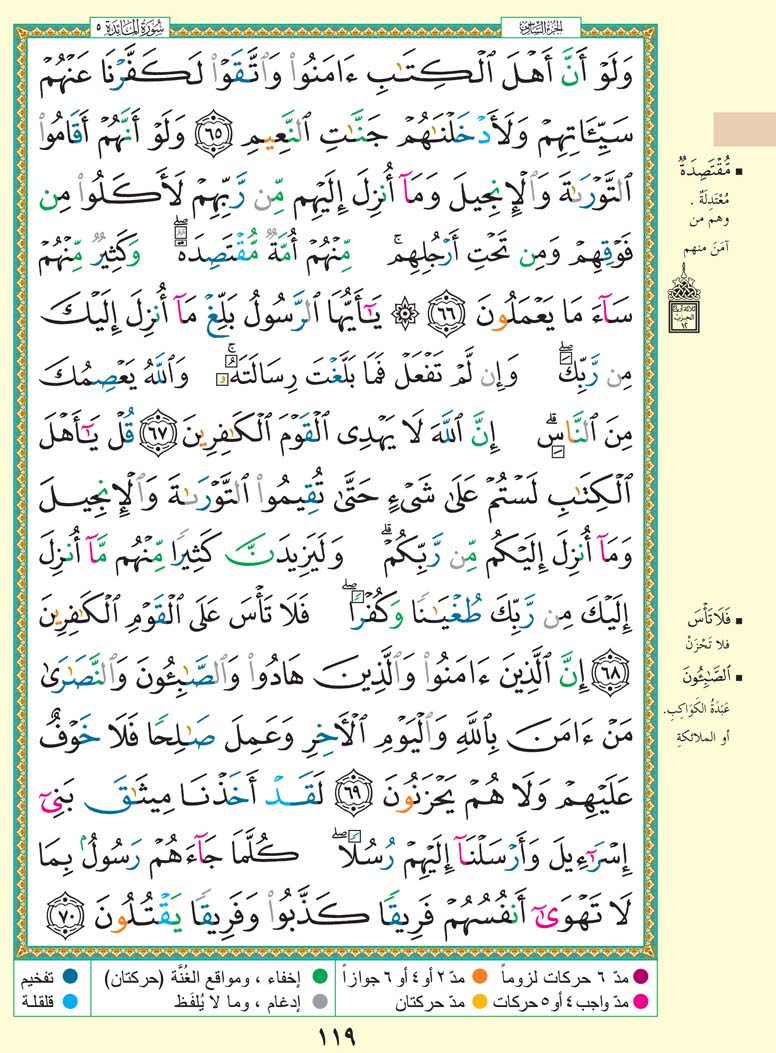 سُورَةُ المَائدة ٥
الجزء السّادس
وَلَوْ أَنَّ أَهْلَ ٱلْكِتَٰبِ ءَامَنُوا۟ وَٱتَّقَوْا۟ لَكَفَّرْنَا عَنْهُمْ
سَيِّـَٔاتِهِمْ وَلَأَدْخَلْنَٰهُمْ جَنَّٰتِ ٱلنَّعِيمِ ٦٥ وَلَوْ أَنَّهُمْ أَقَامُوا۟
ٱلتَّوْرَىٰةَ وَٱلْإِنجِيلَ وَمَآ أُنزِلَ إِلَيْهِم مِّن رَّبِّهِمْ لَأَكَلُوا۟ مِن
فَوْقِهِمْ وَمِن تَحْتِ أَرْجُلِهِم ۚ مِّنْهُمْ أُمَّةٌ مُّقْتَصِدَةٌ ۖ وَكَثِيرٌ مِّنْهُمْ
سَآءَ مَا يَعْمَلُونَ ٦٦ ۞ يَٰٓأَيُّهَا ٱلرَّسُولُ بَلِّغْ مَآ أُنزِلَ إِلَيْكَ
مِن رَّبِّكَ ۖ وَإِن لَّمْ تَفْعَلْ فَمَا بَلَّغْتَ رِسَالَتَهُۥ ۚ وَٱللَّهُ يَعْصِمُكَ
مِنَ ٱلنَّاسِ ۗ إِنَّ ٱللَّهَ لَا يَهْدِى ٱلْقَوْمَ ٱلْكَٰفِرِينَ ٦٧ قُلْ يَٰٓأَهْلَ
ٱلْكِتَٰبِ لَسْتُمْ عَلَىٰ شَىْءٍ حَتَّىٰ تُقِيمُوا۟ ٱلتَّوْرَىٰةَ وَٱلْإِنجِيلَ
وَمَآ أُنزِلَ إِلَيْكُم مِّن رَّبِّكُمْ ۗ وَلَيَزِيدَنَّ كَثِيرًا مِّنْهُم مَّآ أُنزِلَ
إِلَيْكَ مِن رَّبِّكَ طُغْيَٰنًا وَكُفْرًا ۖ فَلَا تَأْسَ عَلَى ٱلْقَوْمِ ٱلْكَٰفِرِينَ
٦٨ إِنَّ ٱلَّذِينَ ءَامَنُوا۟ وَٱلَّذِينَ هَادُوا۟ وَٱلصَّٰبِـُٔونَ وَٱلنَّصَٰرَىٰ
مَنْ ءَامَنَ بِٱللَّهِ وَٱلْيَوْمِ ٱلْـَٔاخِرِ وَعَمِلَ صَٰلِحًا فَلَا خَوْفٌ
عَلَيْهِمْ وَلَا هُمْ يَحْزَنُونَ ٦٩ لَقَدْ أَخَذْنَا مِيثَٰقَ بَنِىٓ
إِسْرَٰٓءِيلَ وَأَرْسَلْنَآ إِلَيْهِمْ رُسُلًا ۖ كُلَّمَا جَآءَهُمْ رَسُولٌۢ بِمَا
لَا تَهْوَىٰٓ أَنفُسُهُمْ فَرِيقًا كَذَّبُوا۟ وَفَرِيقًا يَقْتُلُونَ ٧٠
مُّقْتَصِدَةٌ
مُعْتَدِلَةٌ .
وهم من
آمَنَ منهم
ثلاثة أرباع
الحزب
١٢
فَلَا تَأْسَ
فلا تَحْزَنْ
ٱلصَّٰبِـُٔونَ
عَبَدَةُ الكَوَاكِبِ.
أو الملائكةِ
مدّ ٦ حركات لزوماً
مدّ ٢ أو ٤ أو ٦ جوازاً
إخفاء ، ومواقع الغُنَّة (حركتان)
تفخيم
مدّ واجب ٤ أو ٥ حركات
مدّ حركتان
إدغام ، وما لا يُلفَظ
قلقلة
١١٩